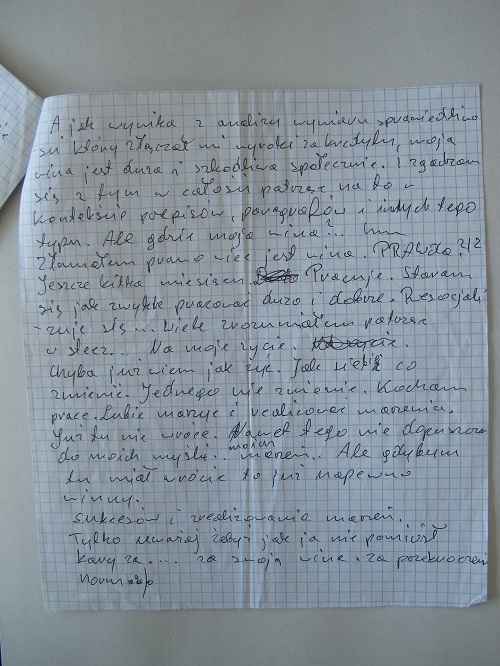 A jak wynika z analizy wymiaru sprawiedliwo
ści który złączał mi wyroki za kredyty, moja
wina jest duża i szkodliwa społecznie. I zgadzam
się z tym w całości patrząc na to w
kontekście przepisów, paragrafów i innych tego
typu. Ale gdzie moja wina?.. hmm
Złamałem prawo więc jest wina. PRAWDA?!?
Jeszcze kilka miesięcy. Pracuje. Staram
się jak zwykle pracować dużo i dobrze. Resocjali
-zuje się... Wiele zrozumiałem patrząc
wstecz.. Na moje życie.
Chyba już wiem jak żyć. Jak siebie co
zmienić. Jednego nie zmienie. Kocham
prace. Lubie marzyć i realizować marzenia.
Już tu nie wróce. Nawet tego nie dopuszczam
do moich myśli.. moich marzeń.. Ale gdybym
tu miał wrócić to już napewno
winny.
sukcesów i zrealizowania marzeń.
Tylko uważaj żebyś jak ja nie poniósł
kary za.... za swoją wine. za przekroczenie
norm